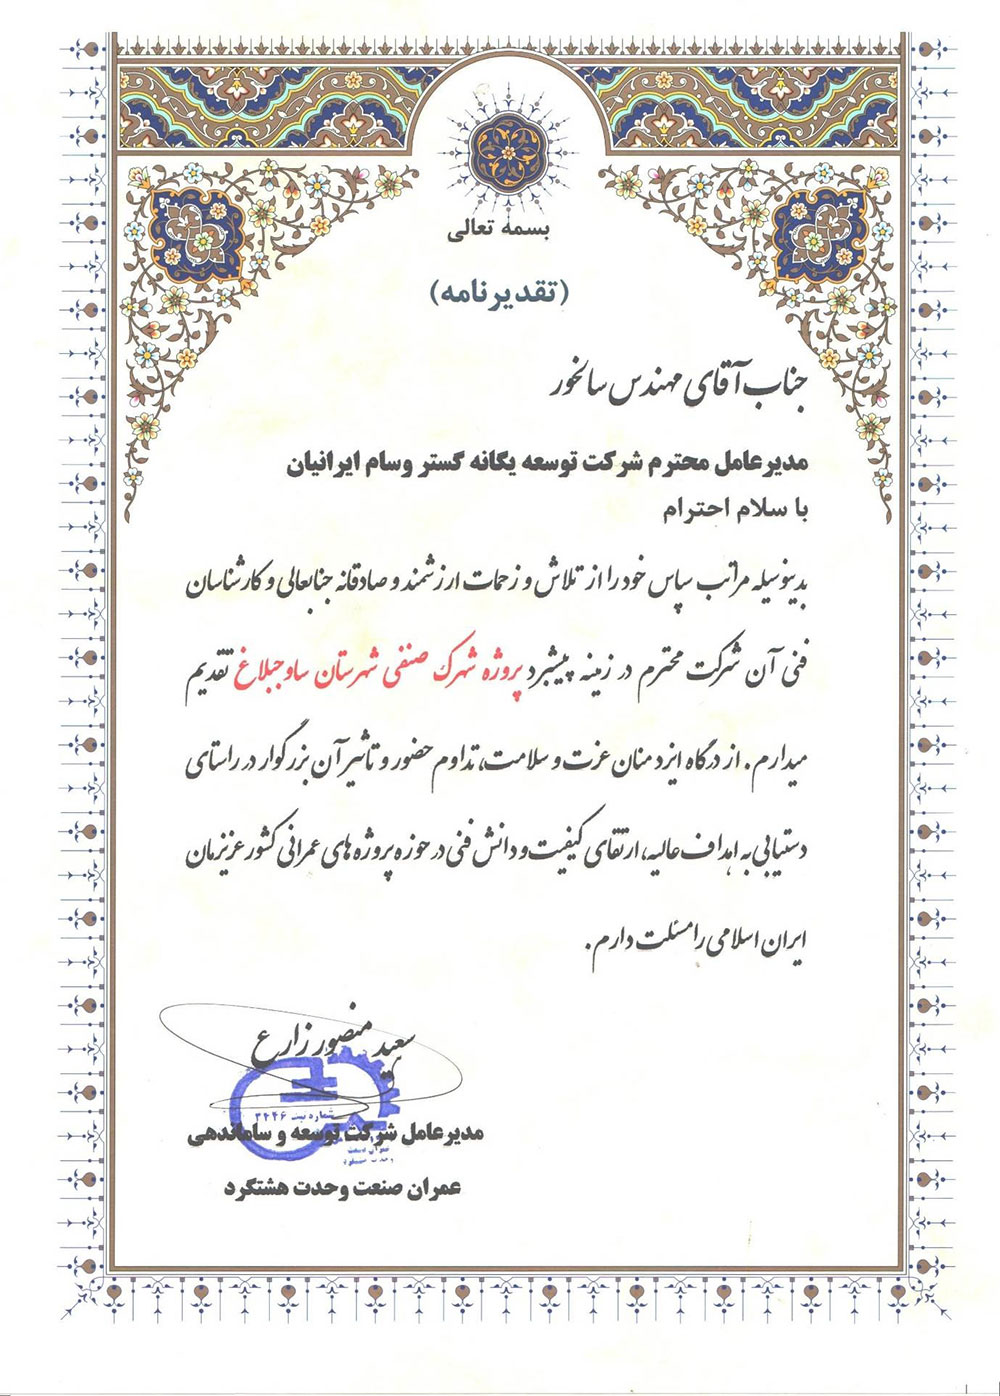 بسمه تعالی
(تقدیرنامه)
جناب آقای مهندس سالخور
مدیرعامل محترم شرکت توسعه یگانه گستر وسام ایرانیان
با سلام احترام
بدینوسیله مراتب سپاس خود را از تلاش و زحمات ارزشمند و صادقانه جنابعالی و کارشناسان
فنی آن شرکت محترم در زمینه پیشبرد پروژه شهرک صنفی شهرستان ساوجبلاغ تقدیم
میدارم. از درگاه ایزد منان عزت و سلامت، تداوم حضور و تاثیر آن بزرگوار در راستای
دستیابی به اهداف عالیه، ارتقای کیفیت و دانش فنی در حوزه پروژه های عمرانی کشور عزیزمان
ایران اسلامی را مسئلت دارم.
سعید منصور زارع
شماره ثبت ۳۴۴۶
مدیرعامل شرکت توسعه و ساماندهی
عمران صنعت وحدت هشتگرد